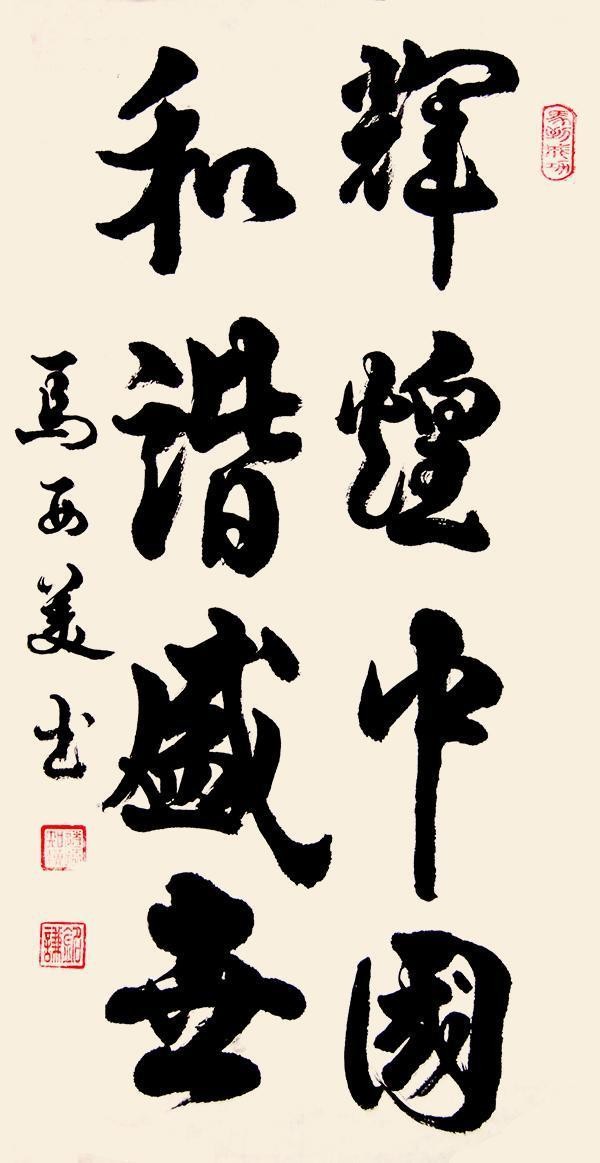 輝煌中國
和諧盛世
馬西美書